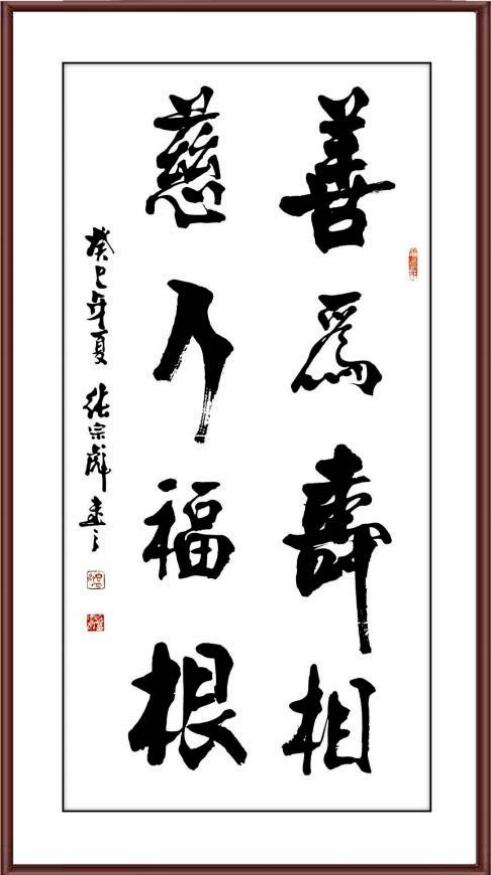 善爲壽相
慈乃福根
癸巳年夏 張宗彪書之